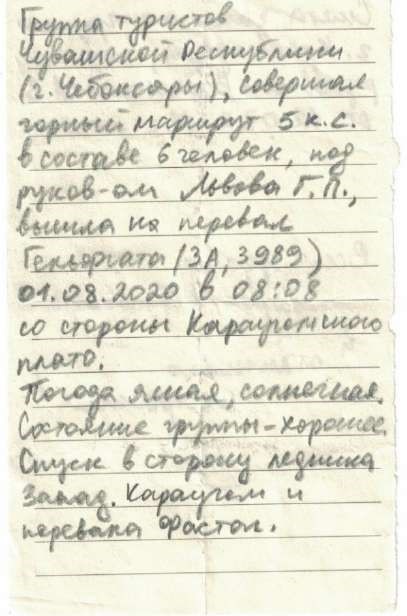 Группа туристов
Чувашской Республики
(г. Чебоксары), совершая
горный маршрут 5 к.с.
в составе 6 человек, под
руков-ом Львова Г.П.,
вышла на перевал
(3А, 3989)
01.08.2020 в 08:08
со стороны Караугомского
плато.
Погода ясная, солнечная.
Состояние группы - хорошее.
Спуск в сторону ледника
Запад. Караугом и
перевала Фастак.